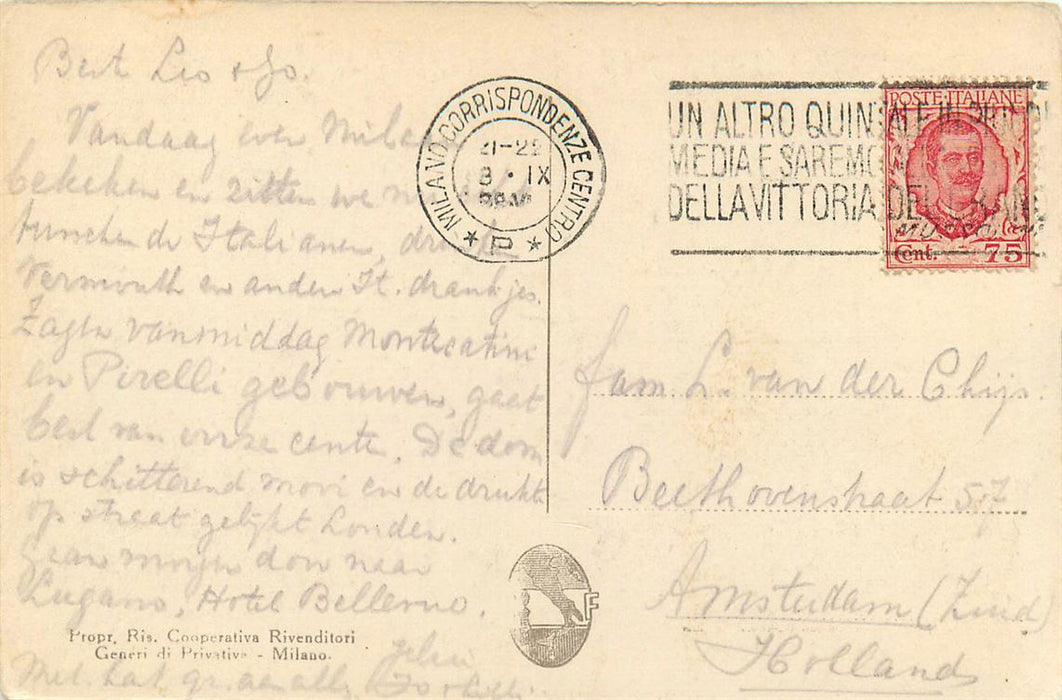 Best Leo + Jo.
Vandaag even Milaan
bekeken en zitten we nu
tusschen de Italianen,
Vermouth en andere It. drankjes.
Zagen vanmiddag Montecatini
en Pirelli gebouwen, gaat
best van onze cente. De dom
is schitterend mooi en de drukte
op straat gelijkt Londen.
Gaan morgen door naar
Lugano, Hotel
Met hart. gr. aan allen
Propr. Ris. Cooperativa Rivenditori
Generi di Privativa - Milano.
MILANO CORRISPONDENZE CENTRO
21-22
8 · IX
* P *
UN ALTRO QUINTALE IN PIÙ DI
MEDIA E SAREMO
DELLA VITTORIA DEL GRANO
POSTE·ITALIANE
Cent. 75
fam. L. van der Chijs.
Beethovenstraat 57
Amsterdam (Zuid)
Holland
F